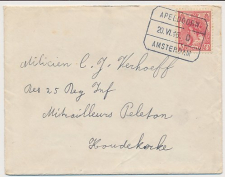 APELDOORN
AMSTERDAM
Milicien C. J. Kerhoeff
Res 25 Reg Inf
Mitrailleurs Peleton
Koudekerke